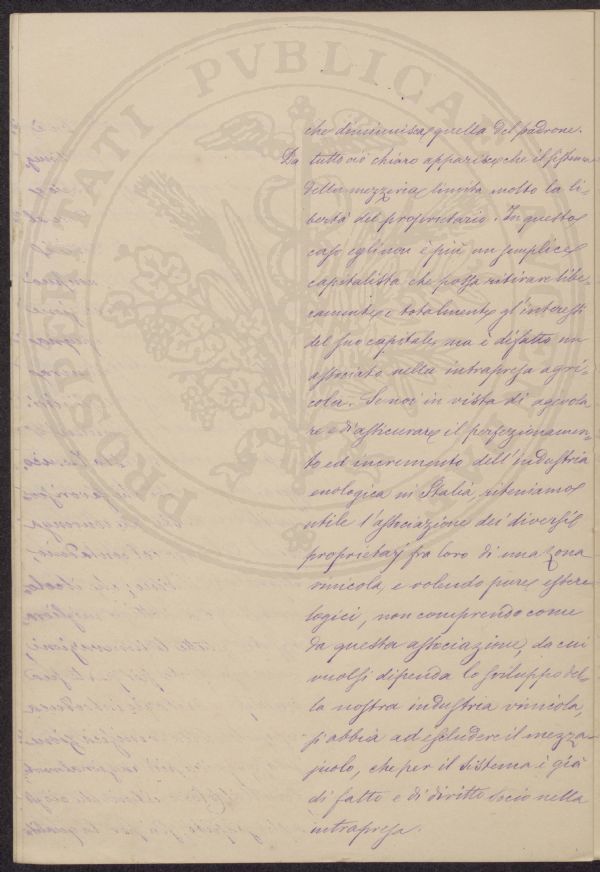 PROSPERITATI PVBLICAE
che diminuisca quella del padrone.
Da tutto ciò chiaro apparisce che il sistema
della mezzeria limita molto la li-
bertà del proprietario. In questo
caso egli non è più un semplice
capitalista che possa ritirare libe-
ramente e totalmente gl'interessi
del suo capitale, ma è difatto un
associato nella intrapresa agri-
cola. Se noi in vista di agevola
re e di assicurare il perfezionamen-
to ed incremento dell'industria
enologica in Italia, riteniamo
utile l'associazione dei diversi
proprietarj fra loro di una zona
vinicola, e volendo pure essere
logici, non comprendo come
da questa associazione, da cui
vuolsi dipenda lo sviluppo del-
la nostra industria vinicola,
si abbia ad escludere il mezza-
juolo, che per il sistema è già
di fatto e di diritto socio nella
intrapresa.